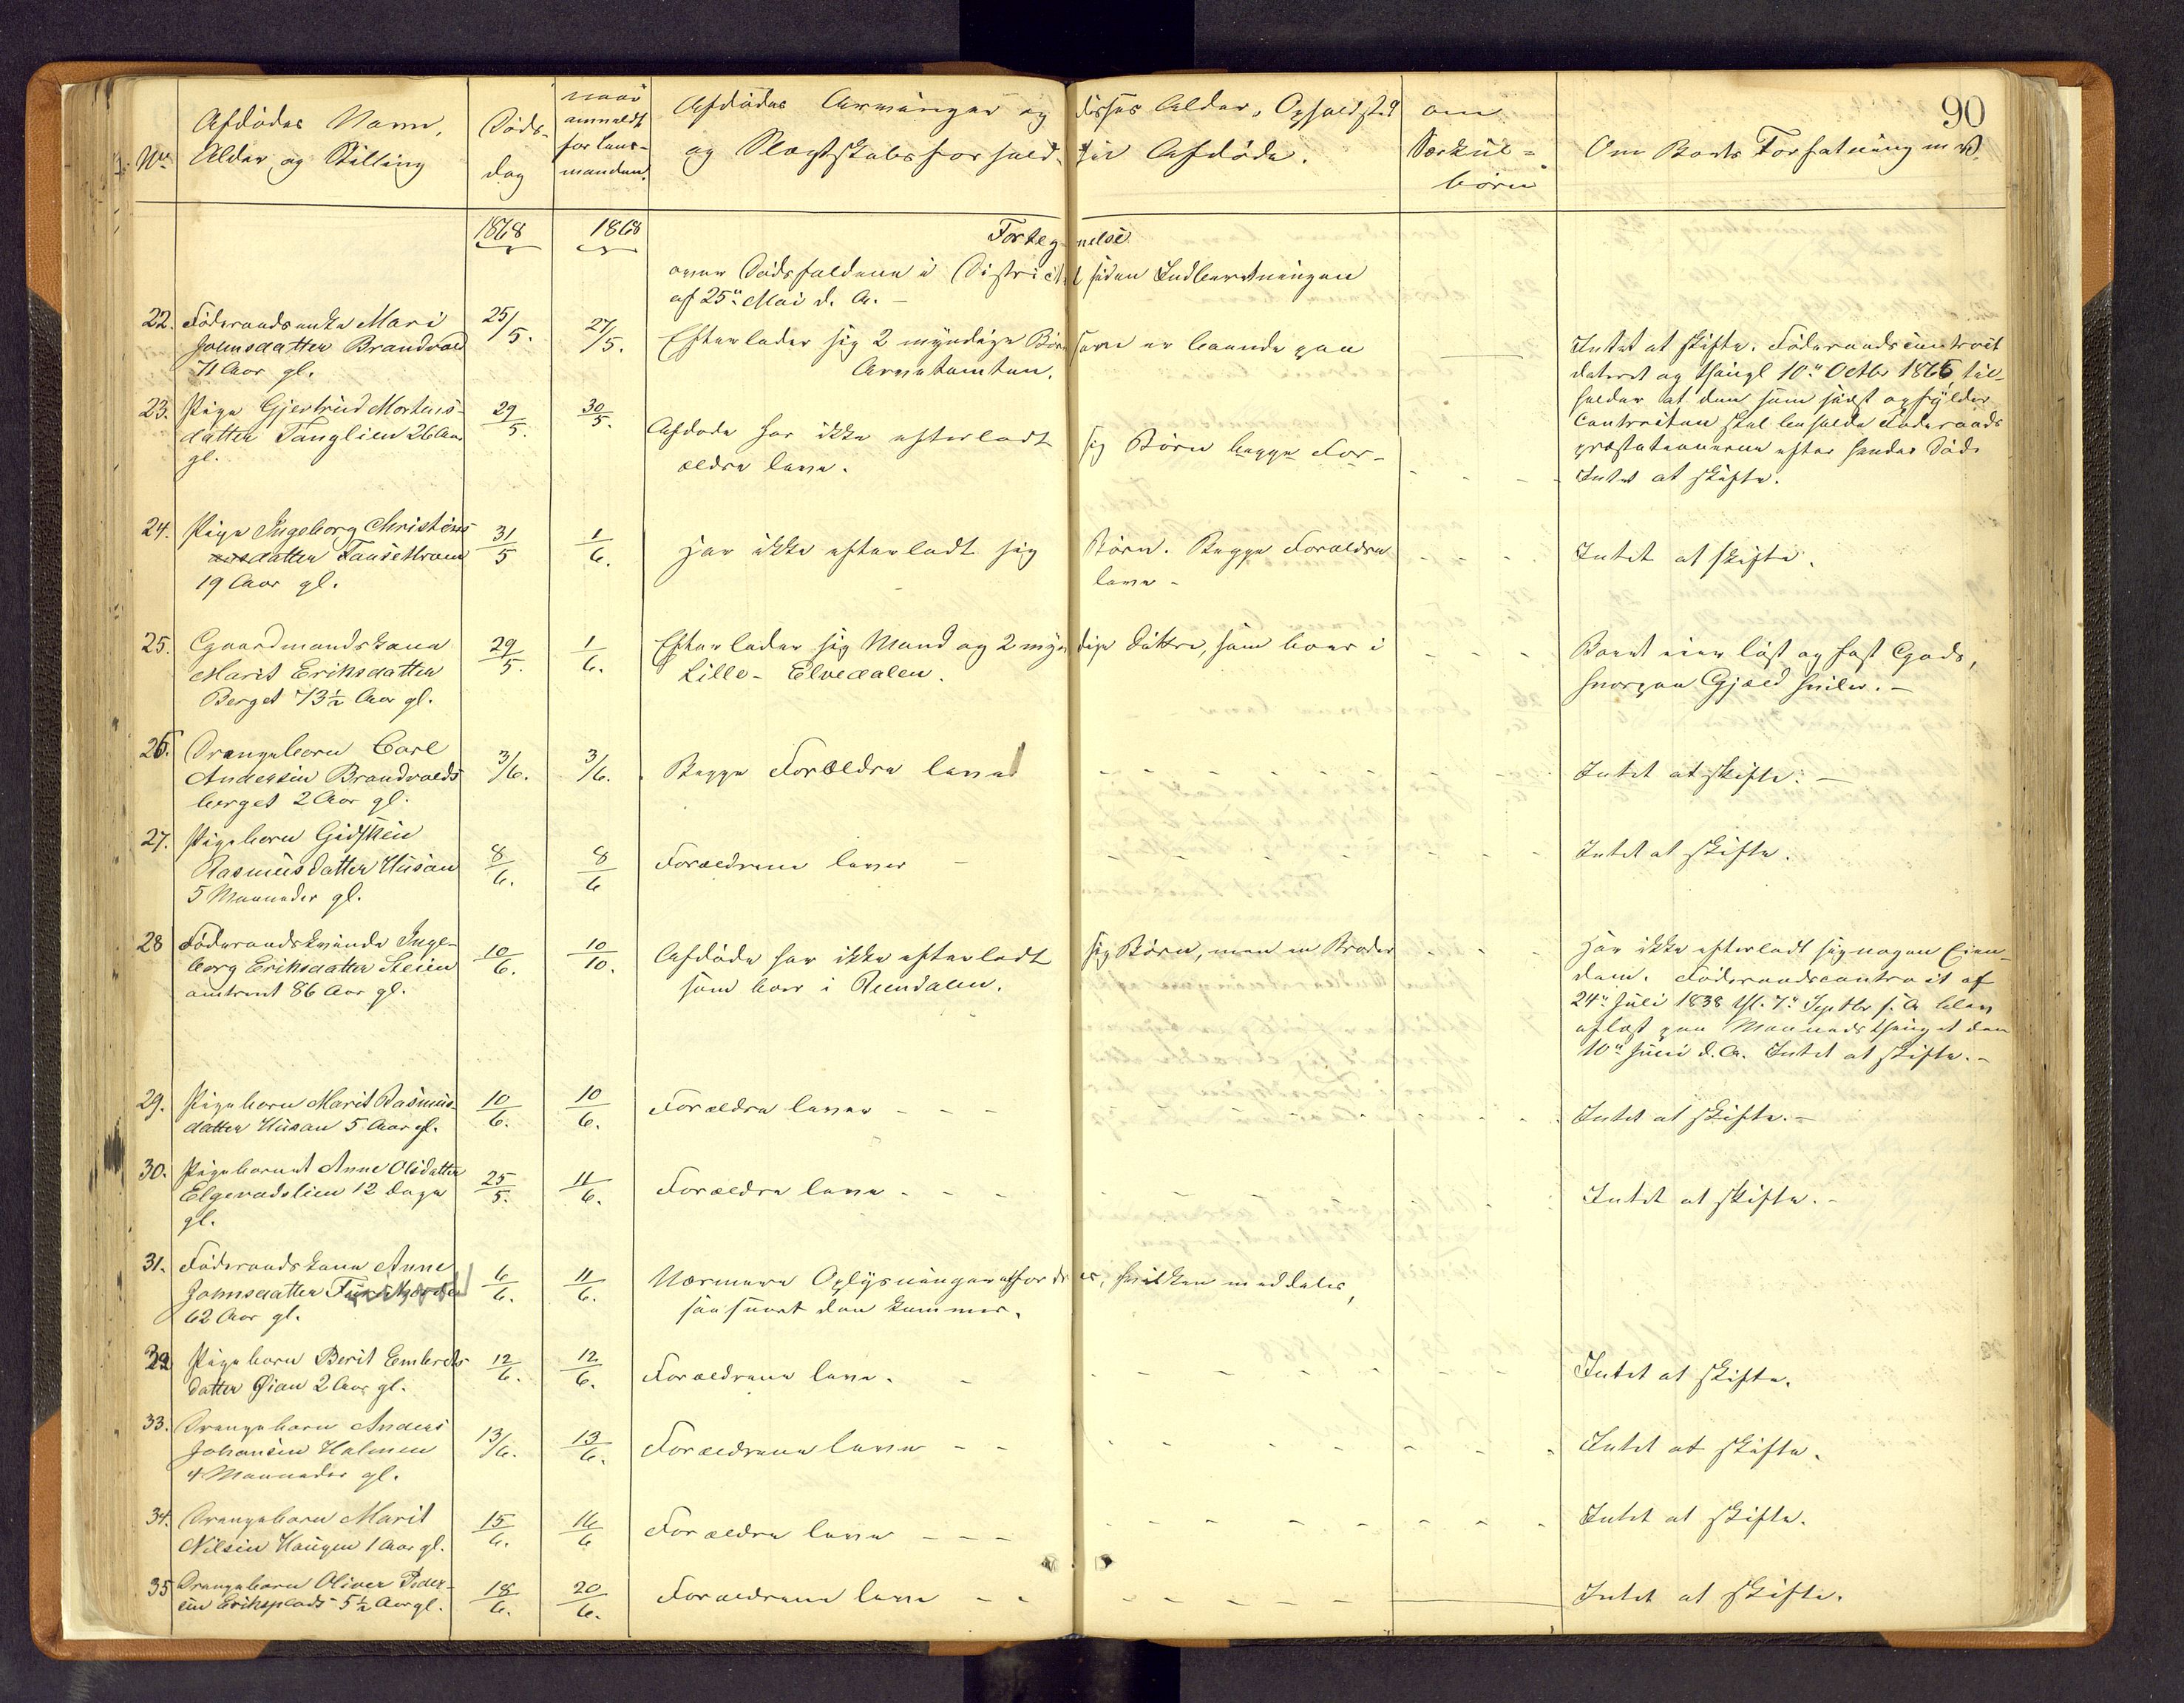 90
No
Afdødes Navn,
Alder og Stilling
Døds-
dag
naar
anmeldt
for Lens-
manden.
Afdødes Arvinger og disses Alder, Opholdsted
og Slægtskabsforhold til Afdøde.
om
Særkul-
børn
Om Boets Forfatning m V.
1868
1868
Fortegnelse
over Dødsfaldene i Districtet siden Indberetningen
af 25de Mai d. A. -
22. Föderaadsenke Mari
Johnsdatter Brandvold
71 Aar gl.
25/5.
27/5.
Efterlader sig 2 myndige Børn som er boende paa
Arnetomten.
Intet at skifte. Föderaadscontract
dateret og thingl 10de Octbr 1865 til-
holder at den som sidst opfylder
Contracten skal beholde Föderaads
præstationerne efter hendes Död.
23. Pige Gjertrud Mortens-
datter Tanglien 26 Aar
gl.
29/5.
30/5.
Afdøde har ikke efterladt sig Børn begge For-
ældre leve.
Intet at skifte.
24. Pige Ingeborg Christens
datter Fausettrøen
19 Aar gl.
31/5
1/6.
Har ikke efterladt sig Børn. Begge Forældre
leve -
Intet at skifte.
25. Gaardmandskone
Marit Eriksdatter
Berget 73½ Aar gl.
29/5.
1/6.
Efterlader sig Mand og 2 myndige Døttre, som boer i
Lille-Elvedalen.
Boet eier løst og fast Gods,
hvorpaa Gjæld hviler. -
26. Drengebarn Carl
Andersen Brandvolds
berget 2 Aar gl.
3/6.
3/6.
Begge Forældre leve
Intet at skifte. -
27. Pigebarn Gidsken
Rasmusdatter Husan
5 Maaneder gl.
8/6.
8/6
Forældrene lever -
Intet at skifte.
28 Föderaadskvinde Inge-
borg Eriksdatter Steien
omtrent 86 Aar gl.
10/6.
10/10.
Afdøde har ikke efterladt sig Børn, men en Broder
som boer i Rendalen.
Har ikke efterladt sig nogen Eien-
dom. Föderaadscontract af
24de Juli 1838 thl. 7de Septbr s. A blev
aflæst paa Maanedsthinget den
10de Juni d. A. Intet at skifte. -
29. Pigebarn Marit Rasmus-
datter Husan 5 Aar gl.
10/6.
10/6.
Forældre lever - - -
Intet at skifte. -
30. Pigebarnet Anne Olsdatter
Elgevadslien 12 Dage
gl.
25/5.
11/6.
Forældre leve - - -
Intet at skifte. -
31. Föderaadskone Anne
Johnsdatter
62 Aar gl.
6/6.
11/6.
Nærmere Oplysninger affordres, hvilken meddeles,
saasnart den kommer.
32 Pigebarn Berit Embrets
datter Øian 2 Aar gl.
12/6.
12/6.
Forældrene leve. -
Intet at skifte.
33. Drengebarn Anders
Johansen Holmen
4 Maaneder gl.
13/6.
13/6.
Forældrene leve - -
Intet at skifte.
34. Drengebarn Marit
Nilsen Haugen 1 Aar gl.
15/6.
16/6
Forældre leve - - -
Intet at skifte.
35 Drengebarn Oliver Peder-
sen Eriksplads 5½ Aar gl.
18/6.
20/6.
Forældrene leve - -
Intet at skifte.